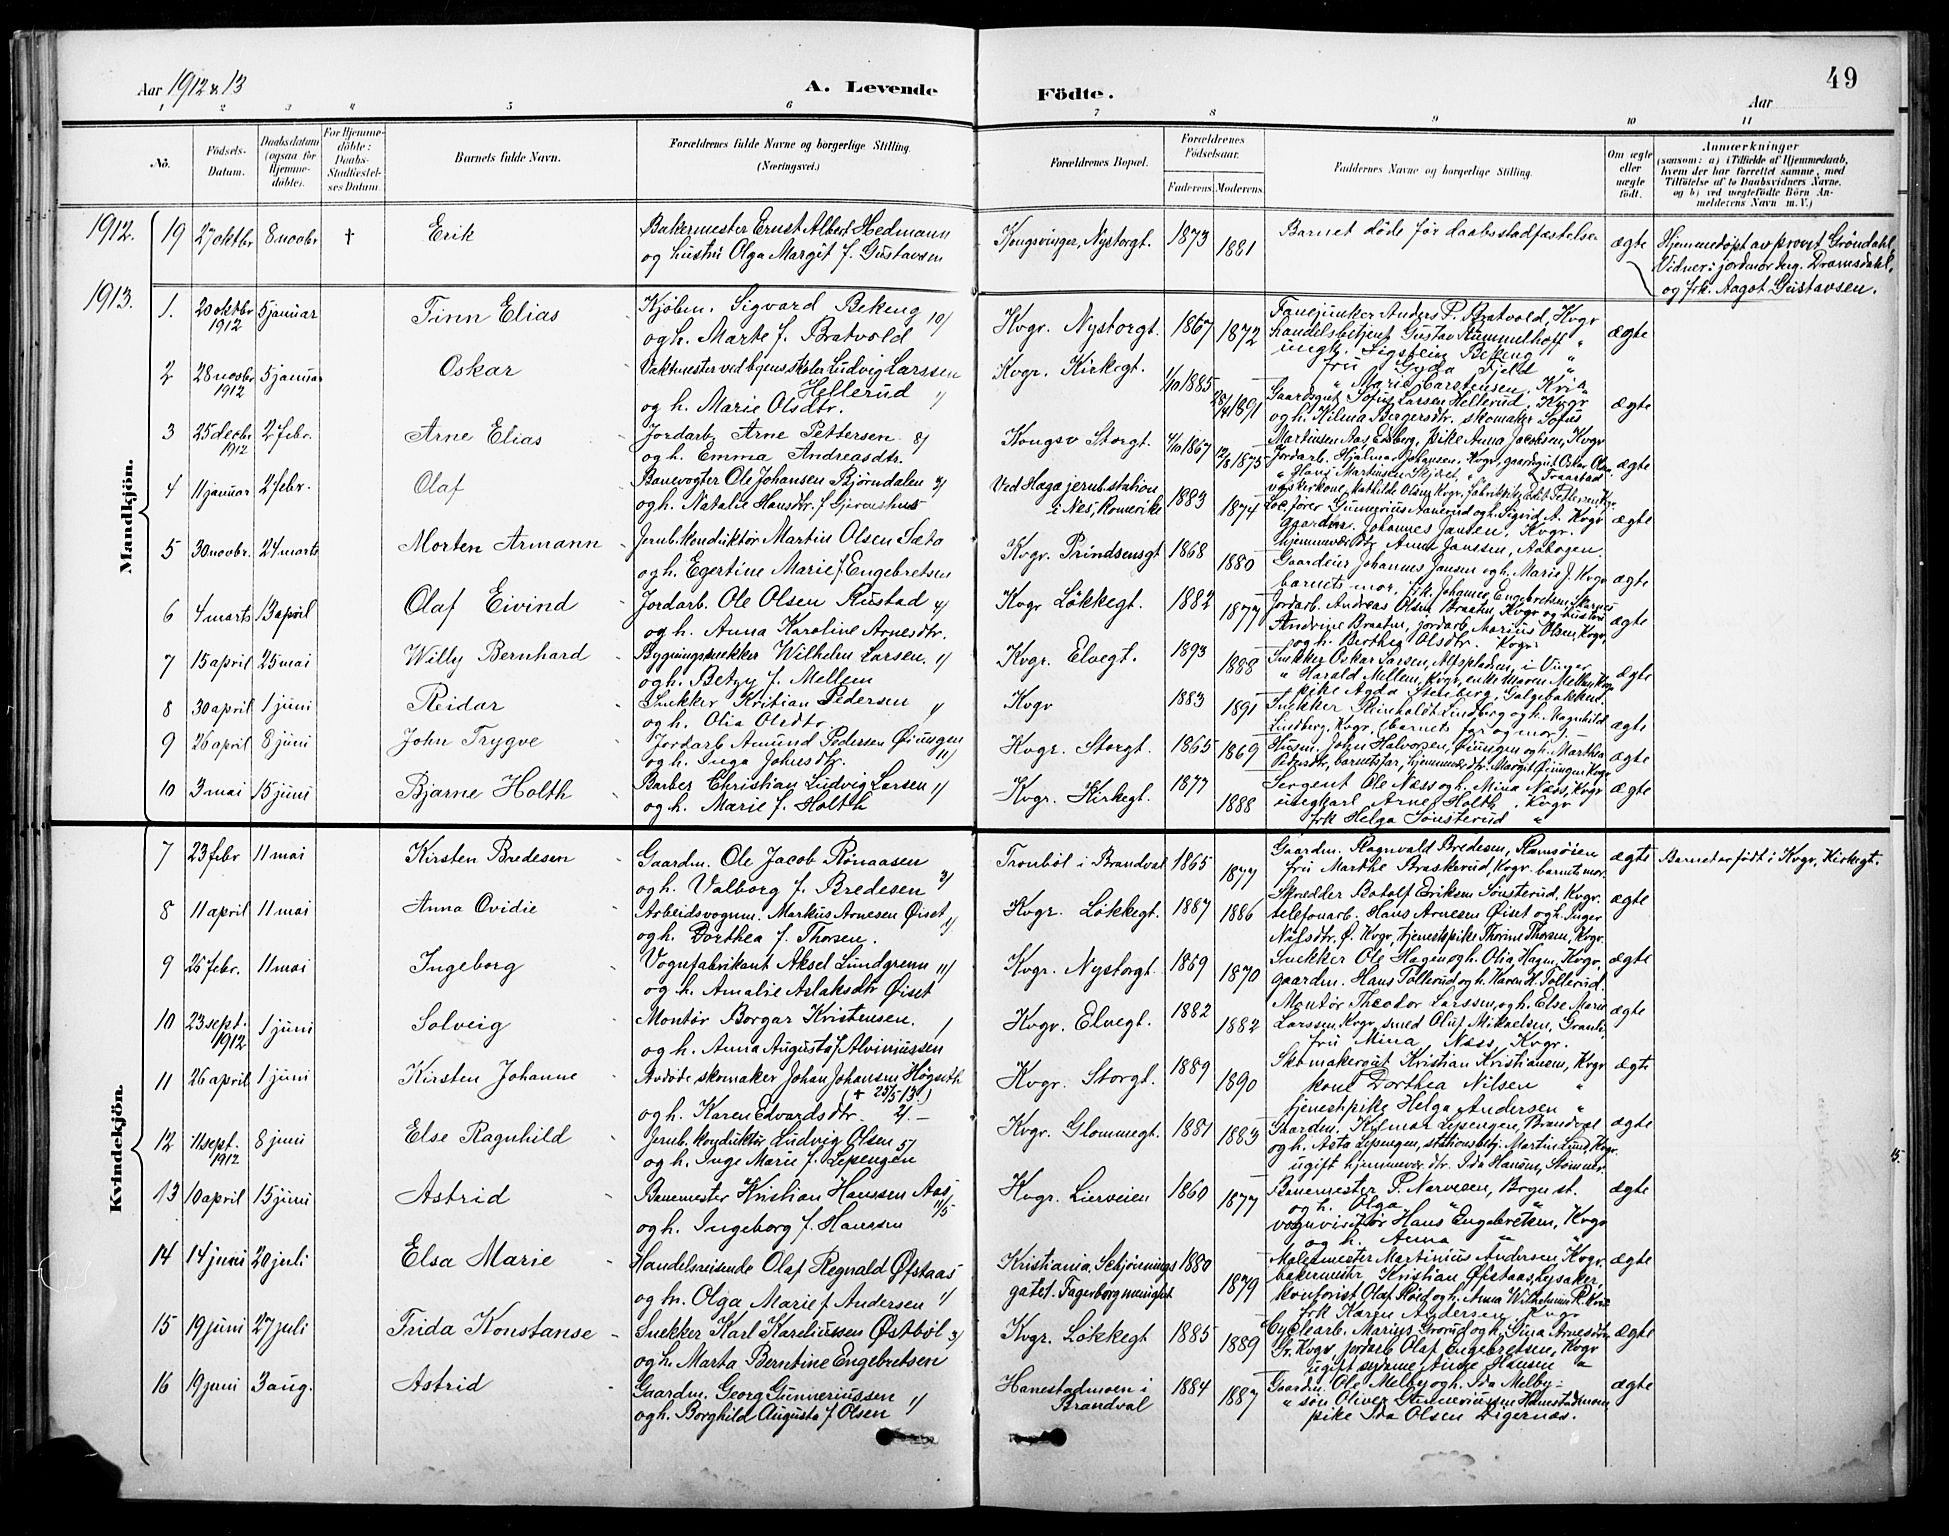 49
Aar 1912 & 13
A. Levende Födte.
Aar
1 2 3 4 5 6 7 8 9 10 11
No.
Födsels-Datum.
Daabsdatum (ogsaa for Hjemme-döbte).
For Hjemme-döbte: Daabs-Stadfæstel-ses Datum.
Barnets fulde Navn.
Forældrenes fulde Navne og borgerlige Stilling. (Næringsvei.)
Forældrenes Bopæl.
Forældrenes Födselsaar.
Faderens. Moderens.
Faddernes Navne og borgerlige Stilling.
Om ægte eller uægte födt.
Anmærkninger
(saasom: a) i Tilfælde af Hjemmedaab,
hvem der har forrettet samme, med
Tilföielse af to Daabsvidners Navne.
og b) ved uægtefödte Börn An-
melderens Navn m. V.)
Mandkjön.
1912. 19 27 oktbr 8 novbr † Erik
Bakermester Ernst Albert Hedmann
og hustru Olga Margit f. Gustavsen
Kongsvinger, Nystorgt. 1873 1881
Barnet döde för daabsstadfæstelse
ægte
Hjemmedöpt av provst Gröndahl,
Vidner: jordmor Berg. Dramsdahl,
og frk. Aagot Gustavsen.
1913. 1. 20 oktbr 1912 5 januar Finn Elias
Kjöbm. Sigvard Bekeng 10/
og h. Marte f. Bratvold
Kvgr. Nystorgt. 1867 1872
Fanejunker Anders P. Bratvold, Kvgr
handelsbetjent Gustav Rummelhoff "
ungk. Sigstein Bekeng "
fru Gyda Fjeld "
" Marie Carstensen, Kr.a
ægte
2 28 novbr 1912 5 januar Oskar
Vaktmester ved byens skoler Ludvig Larssen
Hellerud 1/
og h. Marie Olsdtr.
Kvgr. Kirkegt. 1/10 1885 1891
Gaardsgut Sofus Larsen Hellerud, Kvgr
og h. Hilma Bergersdtr. skomaker Sofus
Martinsen Aas Eidsberg, pike Anna Jacobsen, Kvgr
ægte
3 25 decbr 1912 2 febr. Arne Elias
Jordarb. Arne Pettersen 8/
og h. Emma Andreasdtr.
Kongsv Storgt. 1867 1875
Jordarb. Hjalmar Johansen, Kvgr, gaardsgut Oskar Olsen
ægte
4 11 januar 2 febr. Olaf
Banevogter Ole Johansen Björndalen 3/
og h. Natalie Hansdtr. f. Gjerneshus
Ved Haga jernb.station
i Nes, Romerike 1883 1874
Lok.förer Gunnerius Aanerud og h. Sigrid A. Kvgr
gaardeier Johannes Jansen, Kvgr.
ægte
5 30 novbr. 24 marts Morten Armann
Jernb. Konduktör Martin Olsen Sæta
og h. Egertine Marie f. Engebretsen
Kvgr. Prindsensgt 1868 1880
Gaardeier Johannes Jansen og h. Marie J. Kvgr
barnets mor, Johannes Engebretsen, Skarnes
ægte
6 4 marts 13 april Olaf Eivind
Jordarb. Ole Olsen Rustad 4/
og h. Anna Karoline Arnesdtr.
Kvgr Lökkegt. 1882 1877
Jordarb. Andreas Olsen Braaten, Kvgr og hustru
Andrine Braaten, jordarb Marius Olsen, Kvgr,
og h. Berthea Olsdtr. Kvgr.
ægte
7 15 april 25 mai Willy Bernhard
Bygningssnekker Wilhelm Larsen. 1/
og h. Betzy f. Mellem
Kvgr. Elvegt. 1893 1888
Snekker Oskar Larsen, Alfspladsen, i Vinger
" Harald Mellem, Kvgr, enke Maren Mellem, Kvgr
pike Agda Stenberg, Galgebakken.
ægte
8 30 april 1 juni Reidar
Snekker Kristian Pedersen 1/
og h. Olia Olsdtr.
Kvgr 1883 1891
Snekker Reinholdt Lindberg og h. Ragnhild
Lindberg, Kvgr. (barnets far og mor).
ægte
9 26 april 8 juni John Trygve
Jordarb Amund Pedersen Öiungen 11/
og h. Inga Johnsdtr.
Kvgr. Storgt. 1865 1869
Husm. John Halvorsen, Öiungen og h. Marthea
Pedersdtr, barnets far, hjemmevær.dtr. Margit Öiungen Kvgr
ægte
10 3 mai 15 juni Bjarne Holth
Barber Christian Ludvig Larsen 1/
og h. Marie f. Holth
Kvgr. Kirkegt. 1877 1888
Sergent Ole Næss og h. Mina Næss, Kvgr
ungkarl Arne Holth, Kvgr
frk Helga Sönsterud "
ægte
Kvindekjön.
7 23 febr 11 mai Kirsten Bredesen
Gaardm. Ole Jacob Rönaasen
og h. Valborg f. Bredesen 3/
Tronböl i Brandval 1865 1877
Gaardm. Ragnvald Bredesen, Ramsöien
fru Marthe Braskerud, Kvgr. barnets mor.
ægte
Barnet er födt i Kvgr, Kirkegt.
8 11 april 11 mai Anna Ovidie
Arbeidsvognm. Markus Arnesen Öiset
og h. Dorthea f. Thorsen. 1/
Kvgr. Lökkegt. 1887 1886
Skrædder Botolf Eriksen Sönsterud, Kvgr.
telefonarb. Hans Arnesen Öiset og h. Inger
Nilsdtr. Ö. Kvgr, tjenestpike Thorine Thorsen, Kvgr.
ægte
9 26 febr. 11 mai Ingeborg
Vognfabrikant Aksel Lundgrenn 11/
og h. Amalie Aslaksdtr Öiset
Kvgr. Nystorgt 1869 1870
Snekker Ole Hagen og h. Olia Hagen, Kvgr.
gaardm. Hans Tollerud og h. Karen H. Tollerud.
ægte
10 23 sept. 1912 1 juni Solveig
Montör Borgar Kristensen. 1
og h. Anna Augusta f. Alviniussen
Kvgr. Elvegt. 1882 1882
Montör Theodor Larssen, og h. Else Marie
Larssen, Kvgr, smed Oluf Mikaelsen, Granli,
fru Mina Næss, Kvgr.
ægte
11 26 april 1 juni Kirsten Johanne
Avdöde skomaker Johan Johansen Högseth
(+ 25/5-13.)
og h. Karen Edvardsdtr 2/. -
Kvgr. Storgt. 1889 1890
Skomakersvat Kristian Kristiansen, Kvgr
kone Dorthea Nilsen "
tjenestpike Helga Andersen "
ægte
12 11 sept. 1912 8 juni Else Ragnhild
Jernb. konduktör Ludvig Olsen 5/
og h. Inge Marie f. Lepengen
Kvgr. Glommegt. 1881 1883
Gaardm. Hylmar Lepengen, Brandval
og h. Asta Lepengen, stationsbetj. Martin Lund, Kvgr
ugift hjemmevær. dtr. Ida Hansen, Stömner.
ægte
13 10 april 15 juni Astrid
Banemester Kristian Hanssen Aas 11/5
og h. Ingeborg f. Hanssen
Kvgr. Lierveien 1860 1877
Banemester P. Narvesen, Bogn st.
og h. Olga "
vognvisitör Hans Engebretsen, Kvgr
og h. Anna " "
ægte
14 14 juni 20 juli Elsa Marie
Handelsreisende Olaf Regnald Öfstaas
og h. Olga Marie f Andersen 1/
Kristiania, Schjönnings
gate 1. Fagerborg menighet 1880 1879
Malermester Martinius Andersen Kvgr.
bakermester Kristian Öfstaas, Lysaker,
kontorist Olaf Röed og h. Anna Wilhelmine R. Kvgr
frk Karen Andersen, Kvgr
ægte
15 19 juni 27 juli Frida Konstanse
Snekker Karl Kareliussen Östböl 3/
og h. Marta Berntine Engebretsen
Kvgr. Lökkegt. 1885 1889
Cyclearb. Marius Grorud og h. Gina Arnesdtr
Gr. Kvgr, jordarb Olaf Engebretsen, Kvgr
ugift sydame Anne Hansen "
ægte
16 19 juni 3 aug. Astrid
Gaardm. Georg Gunneriussen
og h. Borghild Augusta f Olsen 1/
Hanestadmoen i
Brandval 1884 1887
Gaardm. Ole Melby og h. Ida Melby
" sön Oliver Gunneriussen Hanestadmoen
pike Ida Olsen Digernæs.
ægte